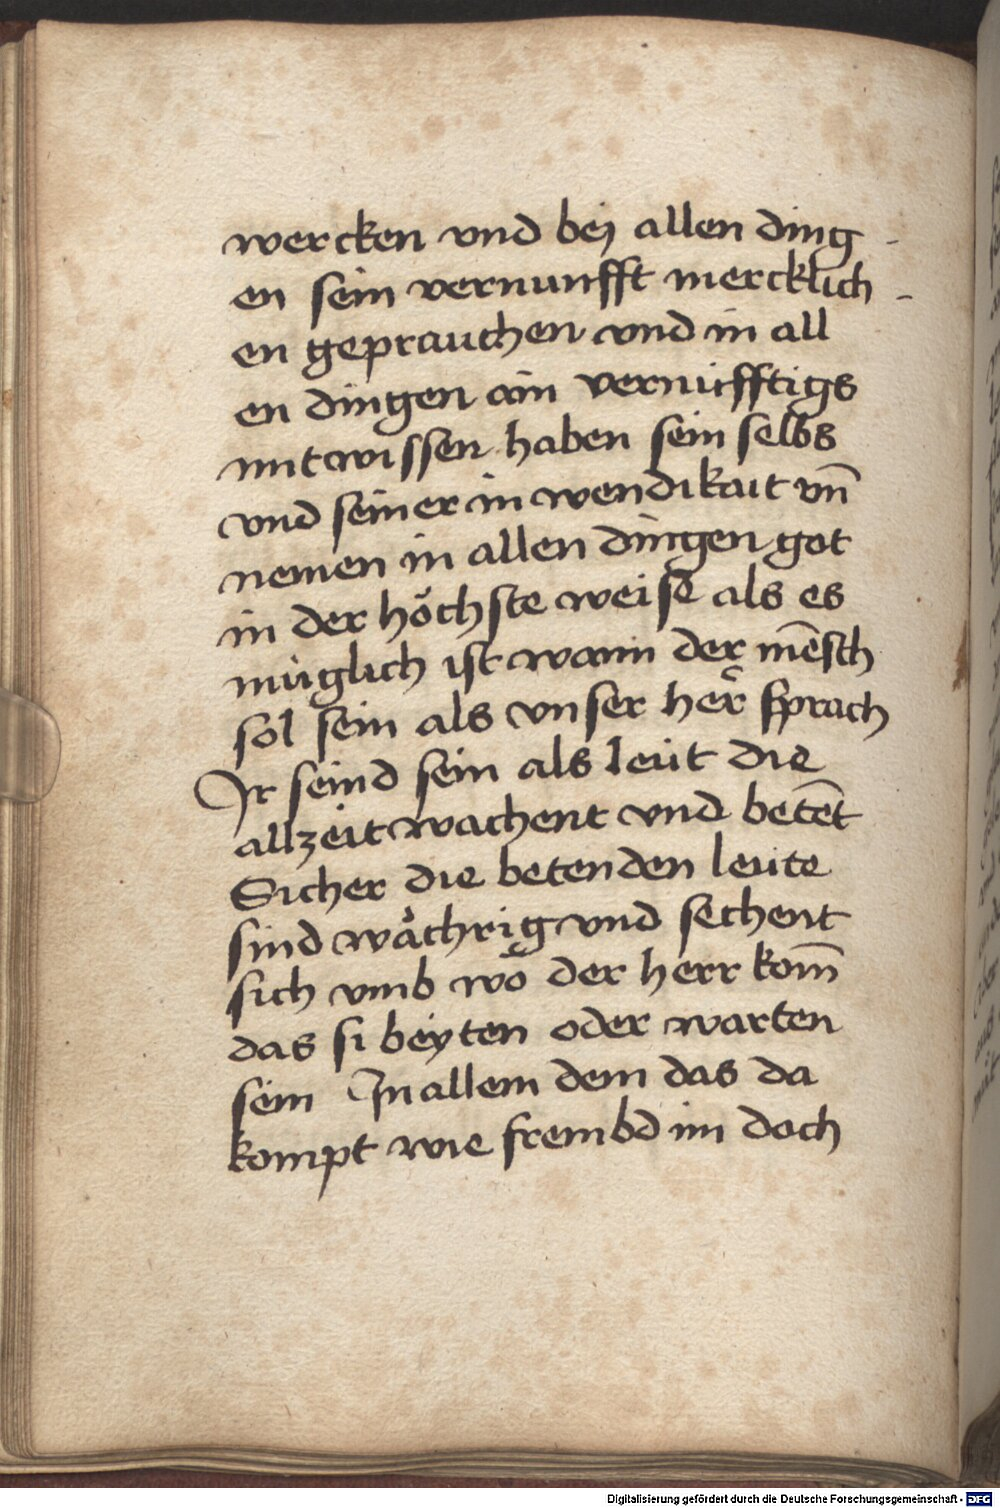 wercken vnd bej allen ding-
en sein vernunfft mercklich-
en geprauchen vnd in all
en dingen ain vernüfftigs
mitwissen haben sein selbs
vnd seiner inwendikait vn̄
nemen in allen dingen got
in der höchste weise als es
müglich ist wann der mēsch
sol sein als vnser her sprach
Ir seind sein als leüt die
allzeit wachent vnd betēt
Sicher die betenden leüte
sind wachrig vnd sechent
sich vmb wo der herr kom̄
das si beyten oder warten
sein In allem dem das da
kompt wie frembd im doch
Digitalisierung gefördert durch die Deutsche Forschungsgemeinschaft - DFG